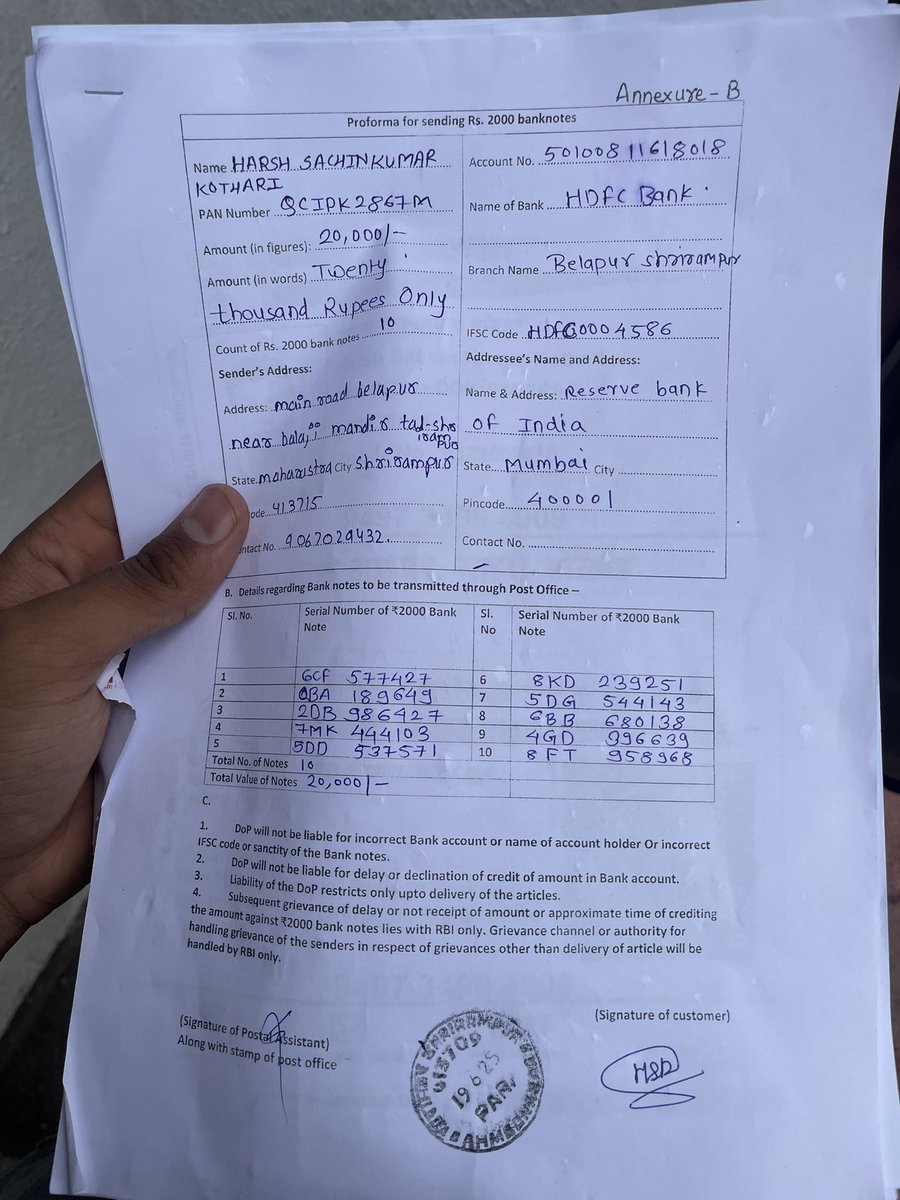 Annexure - B
Proforma for sending Rs. 2000 banknotes
Name HARSH SACHINKUMAR
KOTHARI
PAN Number QCIPK2867M
Amount (in figures): 20,000/-
Amount (in words) Twenty
thousand Rupees Only
Count of Rs. 2000 bank notes 10
Sender's Address:
Address: main road belapur
near balaji mandir tad-shr
iram
pur
State maharastra City Shrirampur
code 413715
ntact No. 9067029432.
Account No. 50100811618018
Name of Bank HDFC Bank
Branch Name Belapur shrirampur
IFSC Code HDFC0004586
Addressee's Name and Address:
Name & Address: Reserve bank
of India
State Mumbai City
Pincode 400001
Contact No.
B. Details regarding Bank notes to be transmitted through Post Office –
Sl. No. Serial Number of ₹2000 Bank Note Sl. No Serial Number of ₹2000 Bank Note
1 6CF 577427 6 8KD 239251
2 0BA 189649 7 5DG 544143
3 2DB 986427 8 6BB 680138
4 7MK 444103 9 4GD 996639
5 5DD 537571 10 8FT 958968
Total No. of Notes 10
Total Value of Notes 20,000/-
C.
1. DoP will not be liable for incorrect Bank account or name of account holder Or incorrect
IFSC code or sanctity of the Bank notes.
2. DoP will not be liable for delay or declination of credit of amount in Bank account.
3. Liability of the DoP restricts only upto delivery of the articles.
4. Subsequent grievance of delay or not receipt of amount or approximate time of crediting
the amount against ₹2000 bank notes lies with RBI only. Grievance channel or authority for
handling grievance of the senders in respect of grievances other than delivery of article will be
handled by RBI only.
(Signature of Postal Assistant)
Along with stamp of post office
413709
19.6.25
PAR
(Signature of customer)
HSK